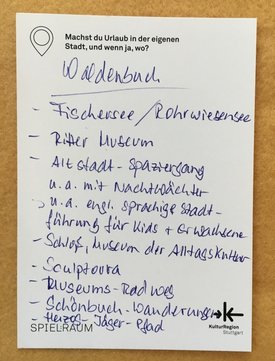 Machst du Urlaub in der eigenen
Stadt, und wenn ja, wo?
Waldenbuch
- Fischersee/Rohrwiesensee
- Ritter Museum
- Altstadt-Spaziergang
u.a. mit Nachtwächter
u.a. engl. sprachige Stadt-
führung für Kids + Erwachsene
- Schloß, Museum der Alltagskultur
- Sculptoura
- Museums-Radweg
- Schönbuch-Wanderungen
- Herzog-Jäger-Pfad
SPIELRAUM
KulturRegion
Stuttgart